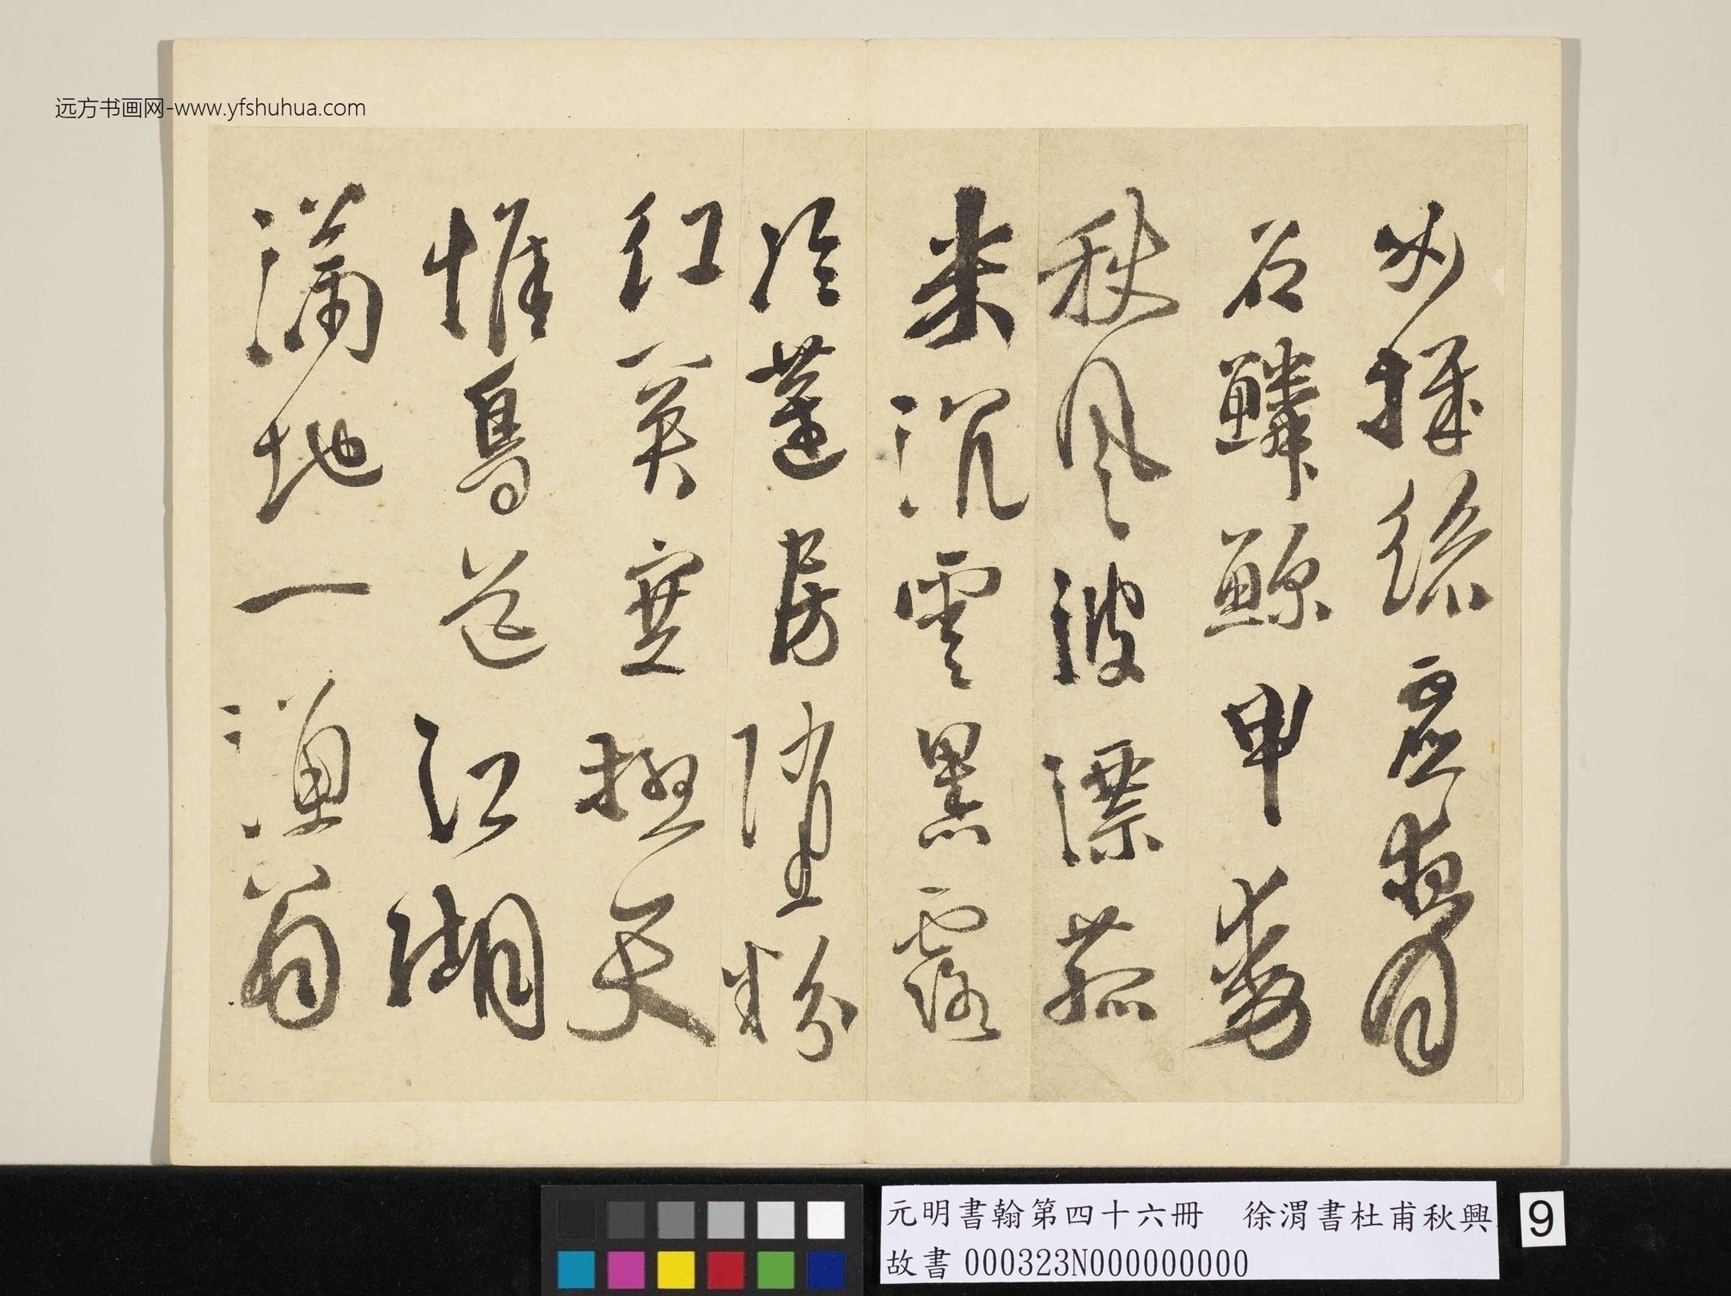 远方书画网-www.yfshuhua.com
女機絲虛夜月
石鱗鯨甲動
秋風波漂菰
米沉雲黑露
冷蓮房墜粉
紅關塞極天
惟鳥道江湖
滿地一漁翁
元明書翰第四十六冊 徐渭書杜甫秋興
故書000323N000000000
9